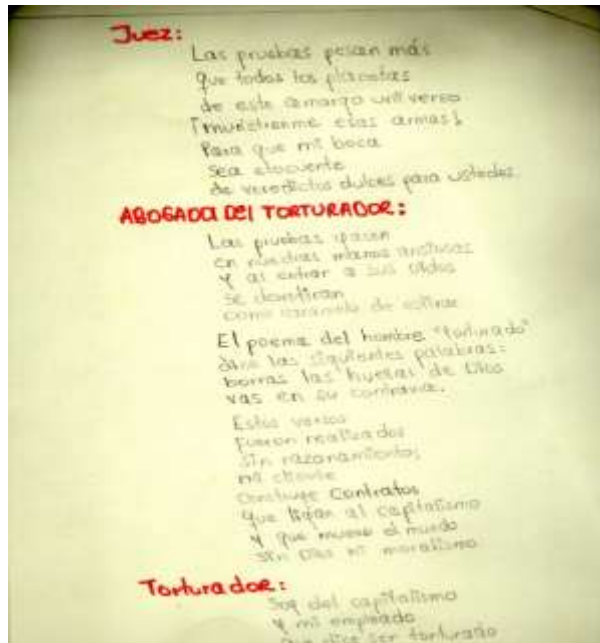 Juez:
Las pruebas pesan más
que todos los planetas
de este amargo universo
¡muéstrenme esas armas!
Para que mi boca
sea elocuente
de veredictos dulces para ustedes.
ABOGADO DEL TORTURADOR:
Las pruebas yacen
en nuestras manos
y al entrar a sus oídos
se
como caramelo de
El poema del hombre "torturado"
dice las siguientes palabras:
borras las huellas de Dios
vas en su contravía.
Estos versos
fueron realizados
sin razonamiento;
mi cliente
construye contratos
que ligan al capitalismo
y que mueve el mundo
sin Dios ni moralismo.
Torturador:
Soy del capitalismo
y mi empleado
que dice ser torturado